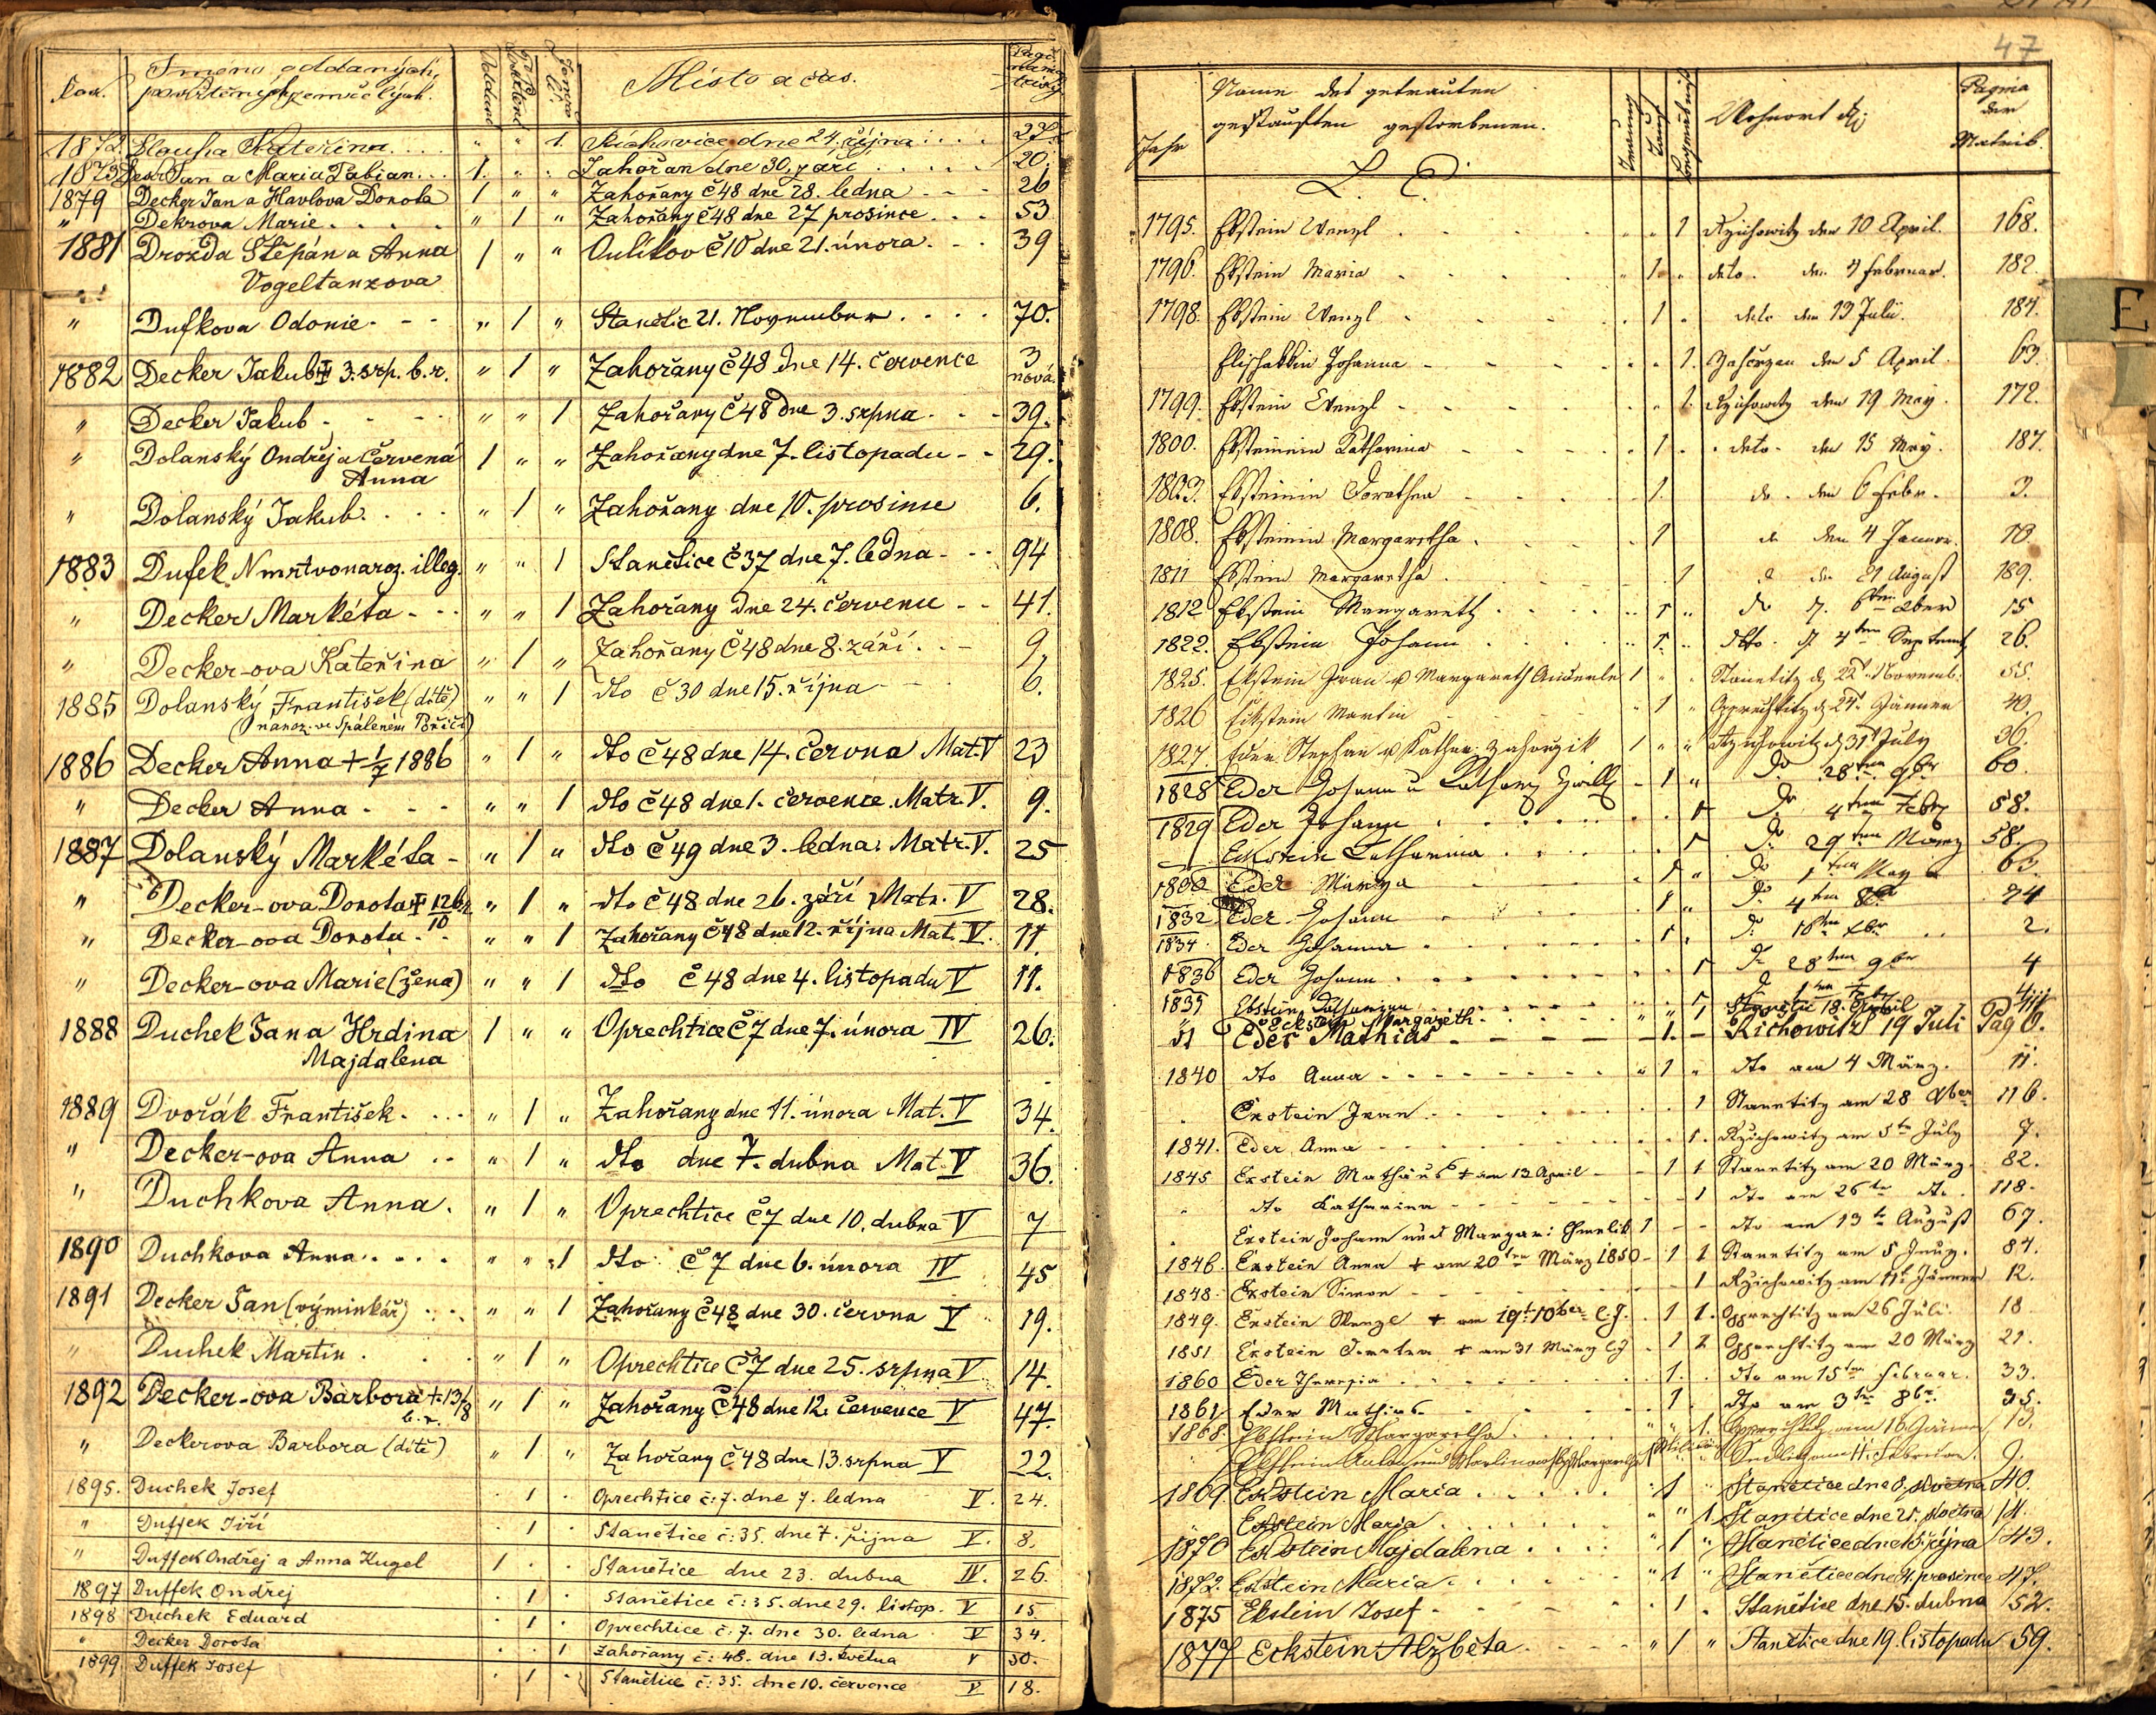 Rok. Jméno oddaných, pokřtěných, zemřelých. Místo a čas.
1872. Slouha Kateřina . . . " " 1. Řichovice dne 24. října . . . 27.
Jan a Maria Fabian . . . 1. " . Zahořan dne 30. září . . . 20.
1879 Decker Jan a Havlova Dorota 1 " " Zahořany č 48 dne 28. ledna - - - 26
" Dekrova Marie . . . . " 1 " Zahořany č 48 dne 27 prosince . . . 53
1881 Drozda Štěpán a Anna 1 " " Oulíkov č 10 dne 21. února . - - 39
Vogeltanzova
" Dufkova Odonie - - - " 1 " Stanětic 21. November . . . . 70.
1882 Decker Jakub 3. srp. b. r. " 1 " Zahořany č 48 dne 14. července 3
nová.
" Decker Jakub - - - - " " 1 Zahořany č 48 dne 3. srpna - - - 39.
" Dolanský Ondřej a Červená 1 " " Zahořany dne 7. listopadu - - 29.
Anna
" Dolanský Jakub . . . . " 1 " Zahořany dne 10. prosince 6.
1883 Dufek N mrtvonaroz. illeg. " " 1 Stanětice č 37 dne 7. ledna - - - 94
" Decker Markéta - - - " " 1 Zahořany dne 24. července - - 41.
" Decker-ova Kateřina " 1 " Zahořany č 48 dne 8. září . - - 9.
1885 Dolanský František (dítě) " " 1 dto č 30 dne 15. října - - - 6.
(naroz. ve Spáleném Poříčí)
1886 Decker Anna + 1/7 1886 " 1 " dto č 48 dne 14. června Mat. V 23
" Decker Anna - - - " " 1 dto č 48 dne 1. července Matr. V. 9.
1887 Dolanský Markéta - " 1 " dto č 49 dne 3. ledna. Matr. V. 25
" Decker-ova Dorota + 12/10 " 1 " dto č 48 dne 26. září Matr. V 28.
" Decker-ova Dorota . . " " 1 Zahořany č 48 dne 12. října Mat. V. 11.
" Decker-ova Marie (žena) " " 1 dto č 48 dne 4. listopadu V 11.
1888 Duchek Jan a Hrdina 1 " " Oprechtice č 7 dne 7. února IV 26.
Majdalena
1889 Dvořák František . . . . " 1 " Zahořany dne 11. února Mat. V 34.
" Decker-ova Anna . . " 1 " dto dne 7. dubna Mat. V 36.
" Duchkova Anna . " 1 " Oprechtice č 7 dne 10. dubna V 7
1890 Duchkova Anna . . . . " " 1 dto č 7 dne 6. února IV 45
1891 Decker Jan (výminkář) . . . " " 1 Zahořany č 48 dne 30. června V 19.
" Duchek Martin . . . " 1 " Oprechtice č 7 dne 25. srpna V 14.
1892 Decker-ova Barbora + 13/8 " 1 " Zahořany č 48 dne 12. července V 47.
b. r.
" Deckerova Barbora (dítě) " 1 " Zahořany č 48 dne 13. srpna V 22.
1895. Duchek Josef . 1 . Oprechtice č: 7. dne 7. ledna V. 24.
" Duffek Jiří . 1 . Stanětice č: 35. dne 7. října V. 8.
" Duffek Ondřej a Anna Kugel 1 . . Stanětice dne 23. dubna IV. 26.
1897 Duffek Ondřej . 1 . Stanětice č: 35. dne 29. listop. V 15.
1898 Duchek Eduard . 1 . Oprechtice č: 7. dne 30. ledna V 34.
" Decker Dorota . . 1 Zahořany č: 48. dne 13. května V 30.
1899 Duffek Josef . 1 . Stanětice č: 35. dne 10. července V 18.
47
Jahr Name des getrauten getauften gestorbenen. Trauung Taufe Wohnort Pagina der Matrik.
E
1795. Ebstein Wenzl . . . . " 1 Rzichowitz den 10 April. 168.
1796. Ebstein Maria . . . . 1 . deto. den 4 Februar. 182.
1798. Ebstein Wenzl . . . . 1 . deto den 13 Juli. 184.
Johanna - - - - 1. Zahorzan den 5 April. 63.
1799. Ebstein Wenzl - - - - 1. Rzichowitz den 19 May. 172.
1800. Ebsteinin Katharina - - - - 1 . . deto - den 15 May. 187.
1803. Ebsteinin Dorothea - - - - 1. do. den 6 Febr. 3.
1808. Ebsteinin Margaretha . . . . 1 do den 4 Januar. 10
1811 Ebstein Margaretha . . . . 1 den 21 August 189.
1812 Ebstein Margareth . . . . 1 " do 15
1822. Ebstein Johann . . . . 1. " dto. d. 4ten Septemb. 26.
1825. Ekstein Margareth Anderle 1 " . Stanetitz d. 22t. Novemb. 55.
1826 Eckstein Martin . . . 1 " Opprechtitz d. 24t. Jänner 40.
1827. Eder Stephan 1 " " Rzichowitz d. 31t July 36.
1828 Eder Johann u - 1 " do 28ten 9br 60.
1829 Eder Johann . . . . . . 1 do 4ten Feb. 58.
Eckstein Catharina . . . . . 1 do 29ten März 58.
1830 Eder . . . . 1 " do 1ten May 63.
1832 Eder Johann . . . . 1 " do 4ten 8br 74
1834. Eder Johanna . . . . . 1 . do 16ten 2.
1836 Eder Johann . . . . . . 1 do 28ten 9br 4
1839 Ebstein Catharina . . . .
" Eckstein Margareth . . . . " " 1 Stanetic 18. April
Eder Mathias - - - - - 1. - Richowitz 19 Juli Pag 6.
1840 dto Anna - - - - - - " 1 " dto am 4 März. 11.
Exstein - - - - 1 Stanetitz am 28 116.
1841. Eder Anna - - - - - 1. Rzichowitz am 5te July 7.
1845 Exstein Mathäus + am 13 April - - 1 1 Stanetitz am 20 März. 82.
" dto Katharina - - - - - 1 dto am 26te dto. 118.
Exstein Johann und Margar: 1 - - dto am 13te August 67.
1846. Exstein Anna + am 20ten März 1850 - 1 1 Stanetitz am 5 84.
1848. Exstein Simon - - - - 1 Rzichowitz am 11t Jänner 12.
1849. Exstein Wenzl + am 19t 10ber l.J. . 1 1. Opprechtitz am 26 Juli. 18
1851 Exstein + am 31 März l J . 1 1 Opprechtitz am 20 März 21.
1860 Eder Theresia . . . . . 1. . dto am 15ten Februar. 33.
1861 Eder Mathias - - - - 1. dto am 3ten 8br. 35.
1868. Ebstein Margaretha . . . . " " 1. Opprechtitz am 16. Jänner 13.
Februar. 9.
1869. Eckstein Maria . . . . . " 1 " Stanětice dne 8. května 40.
" Eckstein Maria . . . . . " " 1. Stanětice dne 25. května 14.
1870 Eckstein Majdalena . . . . " 1 " Stanětice dne 15. října 43.
1872. Eckstein Maria . . . . . " 1 " Stanětice dne 4. prosince 47.
1875 Ekstein Josef - - - - - . 1 . Stanětice dne 15. dubna 52.
1877 Eckstein Alžběta . - - - " 1 " Stanětice dne 19. listopadu 59.
E